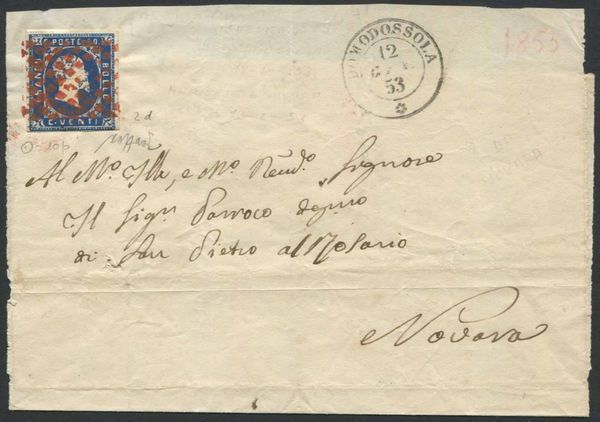 POSTE
BOLLO
C. VENTI
DOMODOSSOLA
12
53
1853
2d
Al M.º Ill., e M.º Rend.º Signore
Il Sig.r Parroco degnmo
di San Pietro al Rosario
Novara